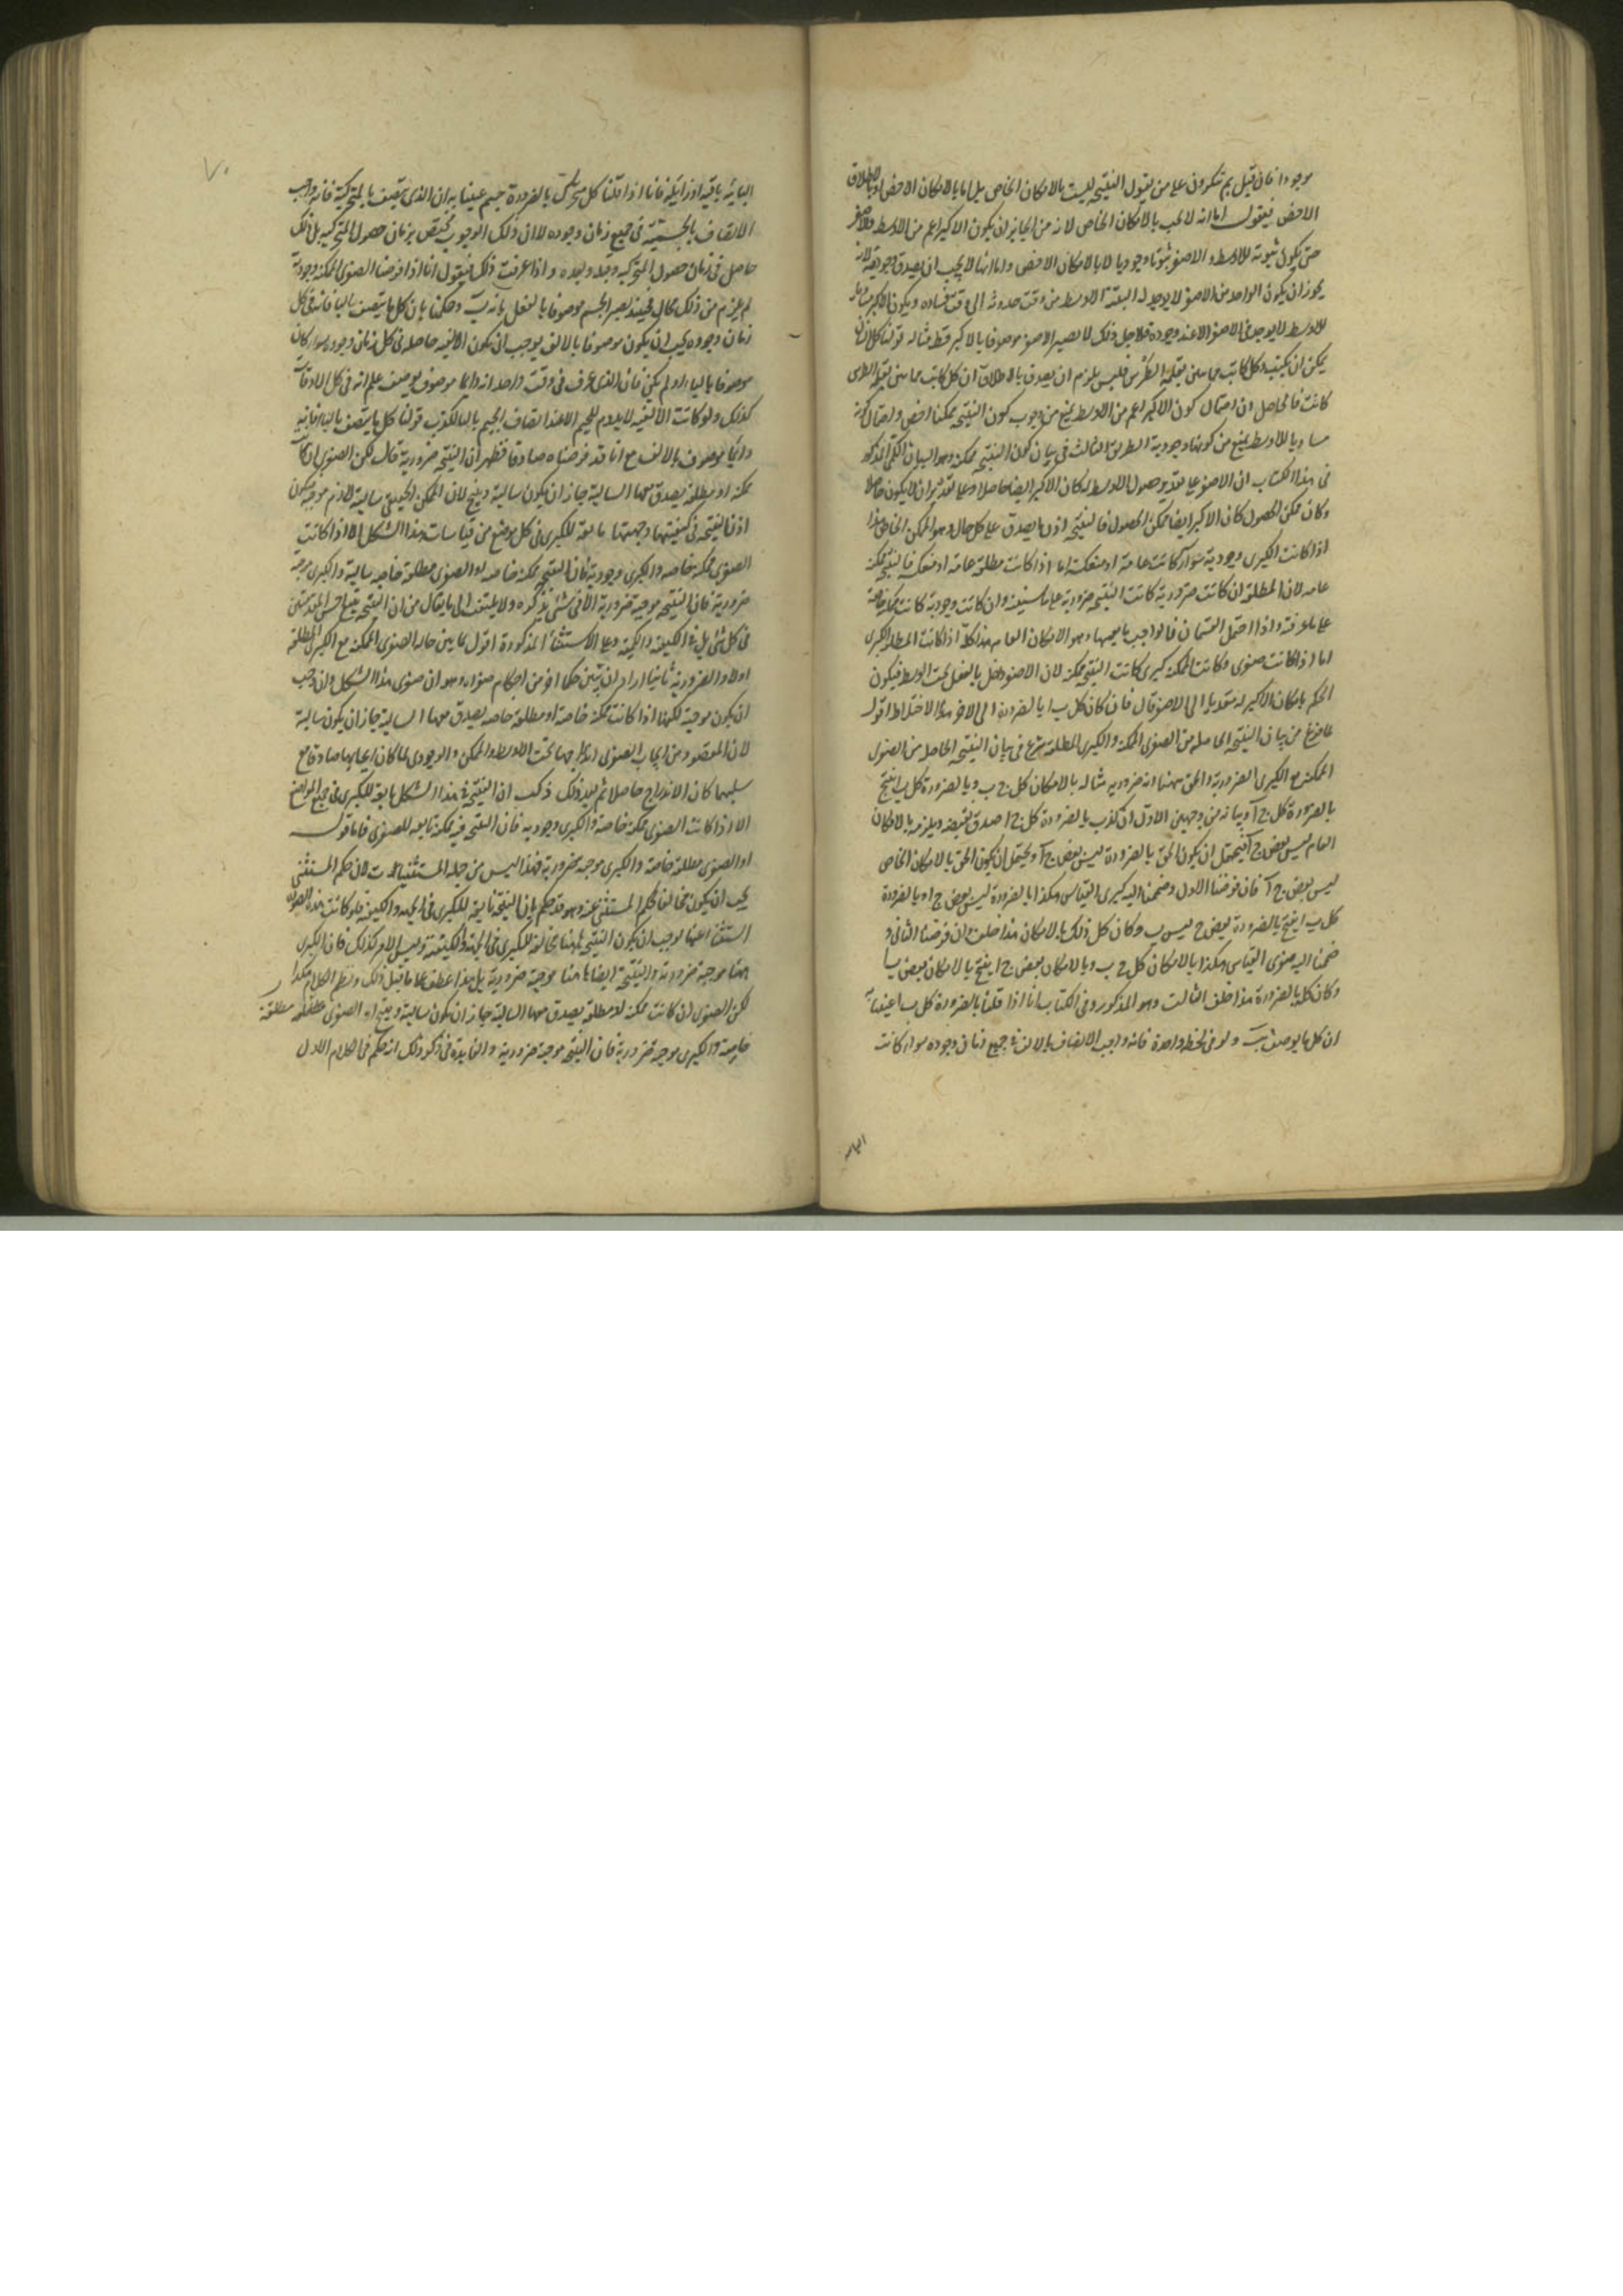 موجودا فان قيل بم تنكرون على من يقول النتيجه ليست بالامكان الخاص بل اما بالامكان الاخص او بالاطلاق
الاخص فيقول اما انه لا يجب بالامكان الخاص لانه من الجايز ان يكون الاكبر اعم من الاوسط والاصغر
حتى يكون ثبوته للاوسط والاصغر ثبوتا وجوديا لا بالامكان الاخص واما انها لا يجب ان يصدق وجوديه لانه
يجوز ان يكون الواحد من الاصغر لا يوجد له البتة الاوسط من وقت حدوثه الى وقت فساده ويكون الاكبر مساويا
للاوسط لا يوجد في الاصغر الا عند وجوده فلاجل ذلك لا يصير الاصغر موصوفا بالاكبر قط مثاله قولنا كل انسان
يمكن ان يكتب وكل كاتب مماس بقلمه الطرس فليس يلزم ان يصدق بالاطلاق ان كل كاتب مماس بقلمه الطرس
كانت فالحاصل ان احتمال كون الاكبر اعم من الاوسط يمنع من وجوب كون النتيجه ممكنا اخص واحتمال كونه
مساويا للاوسط يمنع من كونها وجودية الطريق الثالث في بيان كون النتيجه ممكنه وهو البيان الكلى المذكور
في هذا الكتاب ان الاصغر على تقدير حصول الاوسط له كان الاكبر ايضا حاصلا وعلى تقدير ان لا يكون حاصلا
وكان ممكن الحصول كان الاكبر ايضا ممكن الحصول فالنتيجه اذن ما يصدق على كل حال وهو الممكن الخاص هذا
اذا كانت الكبرى وجودية سواء كانت عامة او منعكسة اما اذا كانت مطلقة عامة او منعكسه فالنتيجه ممكنه
عامه لان المطلقه ان كانت ضرورية كانت النتيجه ضروريه على ما سنبينه وان كانت وجودية كانت ممكنه خاصة
على ما عرفته واذا احتمل القسمان فالواجب ما يعمهما وهو الامكان العام هذا كله اذا كانت المطلقه كبرى
اما اذا كانت صغرى وكانت الممكنه كبرى كانت النتيجه ممكنه لان الاصغر داخل بالفعل تحت الاوسط فيكون
الحكم بامكان الاكبر له متعديا الى الاصغر قال فان كان كل ب ا بالضرورة الى الاخر هذا الاختلاط اقول
لما فرغ من بيان النتيجه الحاصله من الصغرى الممكنه والكبرى المطلقه شرع في بيان النتيجه الحاصله من الصغرى
الممكنه مع الكبرى الضرورية والحق ههنا انه ضروريه مثاله بالامكان كل ج ب وبالضرورة كل ب ا ينتج
بالضرورة كل ج آ وبيانه من وجهين الاول ان كذب بالضرورة كل ج ا صدق نقيضه ويلزمه بالامكان
العام ليس بعض ج آ فيحتمل ان يكون الحق بالضرورة ليس بعض ج آ ويحتمل ان يكون الحق بالامكان الخاص
ليس بعض ج آ فان فرضنا الاول وضممنا اليه كبرى القياس هكذا بالضرورة ليس بعض ج ا وبالضرورة
كل ب ا ينتج بالضرورة بعض ج ليس ب وكان كل ذلك بالامكان هذا خلف وان فرضنا الثاني و
ضممنا اليه صغرى القياس هكذا بالامكان كل ج ب وبالامكان بعض ج ا ينتج بالامكان بعض ب ا
وكان كله بالضرورة هذا خلف الثالث وهو المذكور في الكتاب انا اذا قلنا بالضرورة كل ب ا عنينا به
ان كل ما يوصف ب ولو في لحظة واحدة فانه واجب الاتصاف بالالف في جميع زمان وجوده سواء كانت
البائية
البائيه باقيه او زايله فانا اذا قلنا كل متحرك بالضرورة جسم عنينا به ان الذى يتصف بالمتحركية فانه واجب
الاتصاف بالجسمية في جميع زمان وجوده لا ان ذلك الوجوب يختص بزمان حصول المتحركيه بل ذلك
حاصل في زمان حصول المتحركيه وقبله وبعده واذا عرفت ذلك فنقول انا اذا فرضنا الصغرى الممكنه وجودية
لم يلزم من ذلك محال فحينئذ يصير الجسم موصوفا بالفعل بانه ب وحكمنا بان كل ما يتصف بالبا فانه في كل
زمان وجوده يجب ان يكون موصوفا بالالف يوجب ان يكون الالفيه حاصله في كل زمان وجوده سواء كان
موصوفا بالباء او لم يكن فان الذى عرف في وقت واحد انه دايما موصوف بوصف علم انه في كل الاوقات
كذلك ولو كانت الالفيه لا يدوم للجيم الا عند اتصاف الجيم بالبا لكذب قولنا كل ما يتصف بالباء فانه
دايما موصوف بالالف مع انا قد فرضناه صادقا فظهر ان النتيجه ضرورية قال لكن الصغرى ان كانت
ممكنه او مطلقه يصدق معها السالبه جاز ان يكون سالبة وينتج لان الممكن الحقيقى سالبه لازم موجبه فيكون
اذن النتيجه في كيفيتها وجهتها تابعة للكبرى في كل موضع من قياسات هذا الشكل الا اذا كانت
الصغرى ممكنه خاصه والكبرى وجودية فان النتيجه ممكنه خاصه او الصغرى مطلقة خاصه سالبه والكبرى موجبه
ضرورية فان النتيجه موجبه ضرورية الا في شئ نذكره ولا يلتفت الى ما يقال من ان النتيجه يتبع اخس المقدمتين
في كل شئ بل في الكيفيه والكميه وعلى الاستثناء المذكورة اقول لما بين حال الصغرى الممكنه مع الكبرى المطلقه
اولا والضروريه ثانيا اراد ان يبين حكما اخر من احكام صغراه وهو ان صغرى هذا الشكل وان وجب
ان يكون موجبه لكنها اذا كانت ممكنه خاصة او مطلقه خاصه يصدق معها السالبه جاز ان يكون سالبه
لان المقصود من ايجاب الصغرى اندراجها تحت الاوسط والممكن والوجودى لما كان ايجابهما صادقا مع
سلبهما كان الاندراج حاصلا ثم بعد ذلك ذكر ان النتيجة في هذا الشكل تابعه للكبرى في جميع المواضع
الا اذا كانت الصغرى ممكنه خاصة والكبرى وجوديه فان النتيجه فيه ممكنه تابعه للصغرى فاما قوله
او الصغرى مطلقه خاصة والكبرى موجبه ضرورية فهذا ليس من جمله المستثنيات لان حكم المستثنى
يجب ان يكون مخالفا لحكم المستثنى عنه وهو قد حكم بان النتيجة تابعه للكبرى في الجهه والكيفيه فلو كانت هذه الصوره
استثناءا عنها لوجب ان يكون النتيجه ههنا مخالفة للكبرى في الجهة والكيفية وليس الامر كذلك فان الكبرى
ههنا موجبه ضرورية والنتيجة ايضا هاهنا موجبه ضرورية بل هذا عطف على ما قبل ذلك ونظم الكلام هكذا
لكن الصغرى ان كانت ممكنه او مطلقه يصدق معها السالبه جاز ان يكون سالبه وينتج او الصغرى مطلقة
خاصة والكبرى موجبه ضرورية فان النتيجه موجبه ضرورية والفايدة في ذكر ذلك انه حكم في الكلام الاول